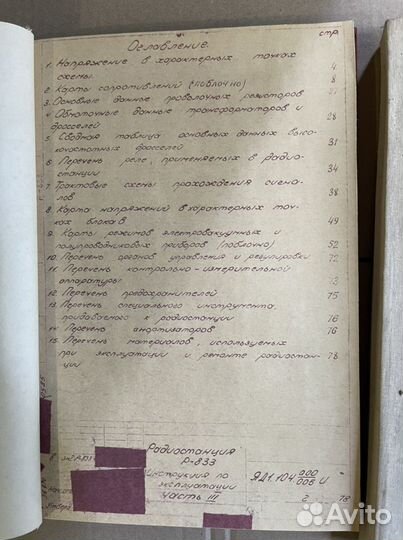 Оглавление
стр.
1. Напряжение в характерных точках
схемы. 4
2. Карты сопротивлений (поблочно) 8
3. Основные данные проволочных резисторов
4. Обмоточные данные трансформаторов и
дросселей 28
5. Сводная таблица основных данных высо-
кочастотных дросселей 31
6. Перечень реле, применяемых в радио-
станции 34
7. Трактовые схемы прохождения сигна-
лов 38
8. Карта напряжений в характерных точ-
ках блока 8 49
9. Карты режимов электровакуумных и
полупроводниковых приборов (поблочно) 52
10. Перечень органов управления и регулировки 72
11. Перечень контрольно-измерительной
аппаратуры 73
12. Перечень предохранителей 75
13. Перечень специального инструмента,
придаваемого к радиостанции 76
14. Перечень амортизаторов 76
15. Перечень материалов, используемых
при эксплуатации и ремонте радиостан- 78
ции
Радиостанция
Р-833
Инструкция по
эксплуатации
часть III
2 78
Avito